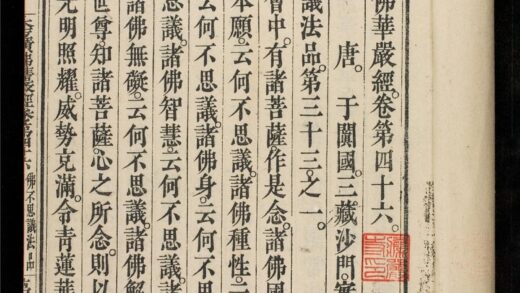 佛華嚴經。卷第四十六。
唐。于闐國。三藏沙門。實
議法品。第三十三之一。
會中。有諸菩薩作是念。諸佛國
本願。云何不思議。諸佛種性。云
云何不思議。諸佛身。云何不思
思議。諸佛智慧。云何不思議。諸
諸佛無礙。云何不思議。諸佛解
世尊。知諸菩薩。心之所念。則以
光明照耀。威勢充滿。令青蓮華
大方廣佛華嚴經卷第四十六 佛不思議法品